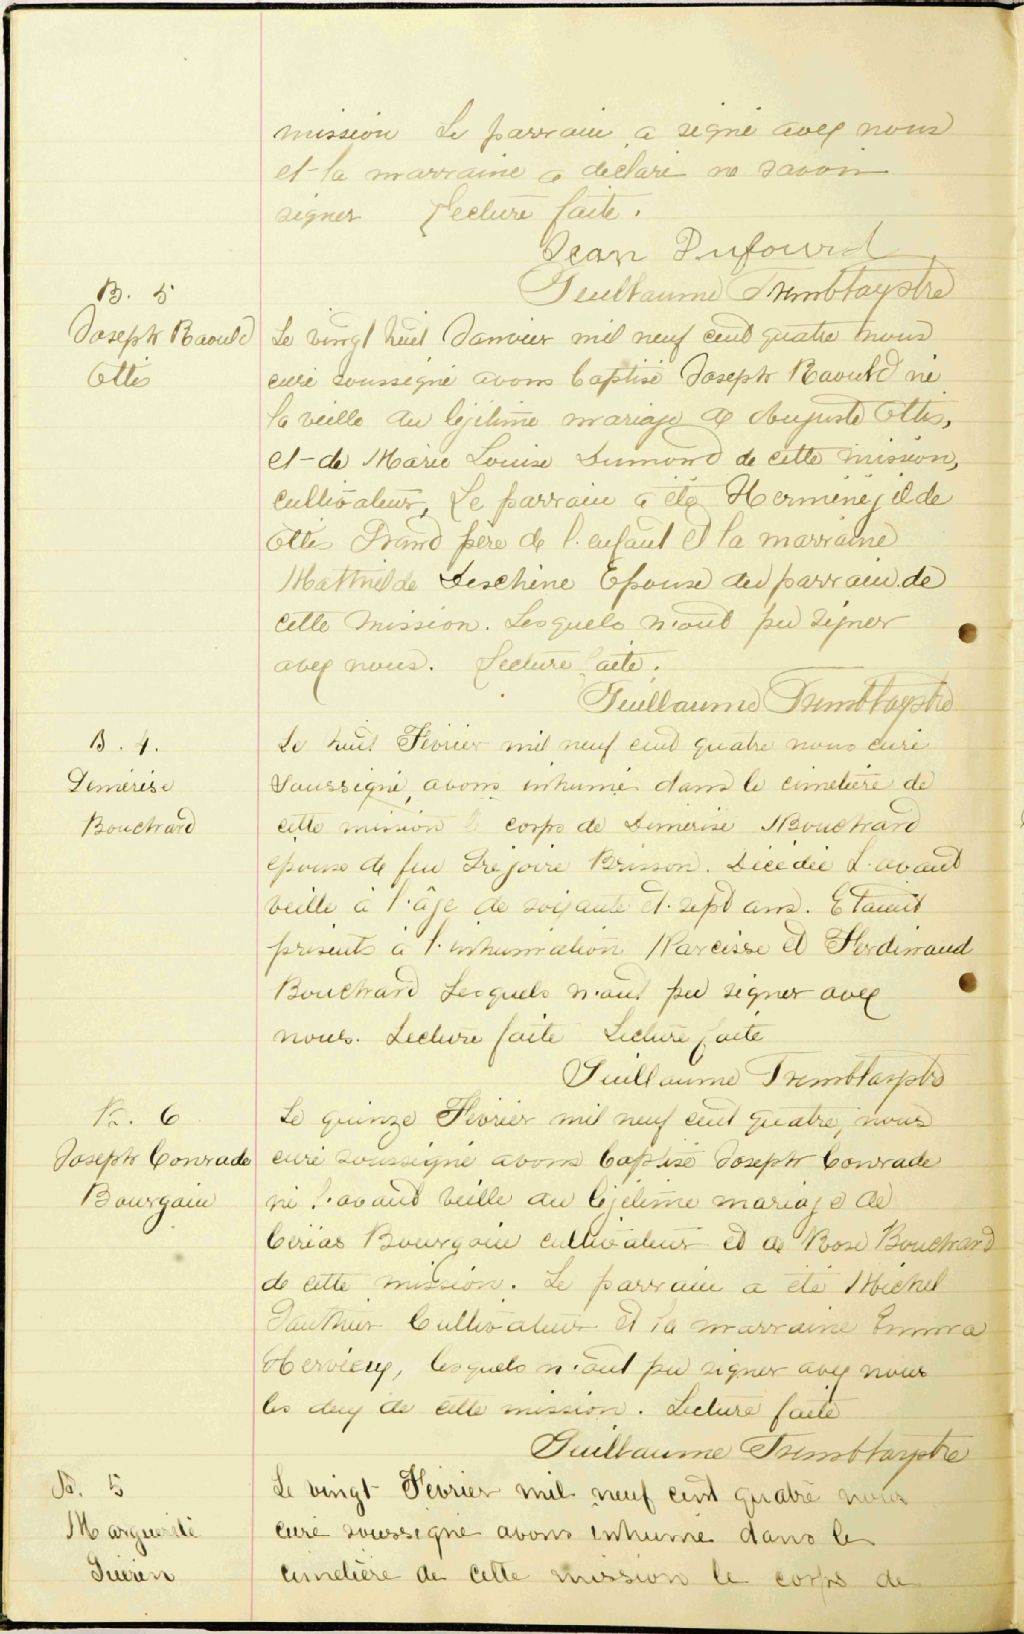 mission Le parrain a signé avex nous
et la marraine a déclaré ne savoir
signer Lecture faite.
Jean Dufourd
Guillaume Tremblay ptre
B. 5
Joseph Raould
Ottis
Le vingt huit Janvier mil neuf cent quatre nous
curé soussigné avons baptisé Joseph Raould né
la veille du légitime mariage de Auguste Ottis,
et de Marie Louise Dumond de cette mission,
cultivateur, Le parrain a été Herménéjilde
Ottis Grand père de l'enfant et la marraine
Mathilde Deschène Épouse du parrain de
cette mission. Lesquels n'ont pu signer
avex nous. Lecture faite.
Guillaume Tremblay ptre
B. 4.
Démérise
Bouchard
Le huit Février mil neuf cent quatre nous curé
soussigné, avons inhumé dans le cimetière de
cette mission le corps de Démerise Bouchard
épouse de feu Gréjoire Brisson. Décédée l'avant
veille à l'âge de soixante et sept ans. Etaient
présents à l'inhumation Narcisse et Ferdinand
Bouchard Lesquels n'ont pu signer avex
nous. Lecture faite Lecture faite
Guillaume Tremblay ptre
6
Joseph Conrade
Bourgoin
Le quinze Février mil neuf cent quatre, nous
curé soussigné avons baptisé Joseph Conrade
né l'avant veille du légitime mariage de
Ciréas Bourgoin cultivateur et de Rose Bouchard
de cette mission. Le parrain a été Michel
Gauthier Cultivateur et la marraine Emma
Hervieux, lesquels n'ont pu signer avex nous
les deux de cette mission. Lecture faite
Guillaume Tremblay ptre
5
Marguerite
Guérin
Le vingt Février mil neuf cent quatre nous
curé soussigné avons inhumé dans le
cimetière de cette mission le corps de